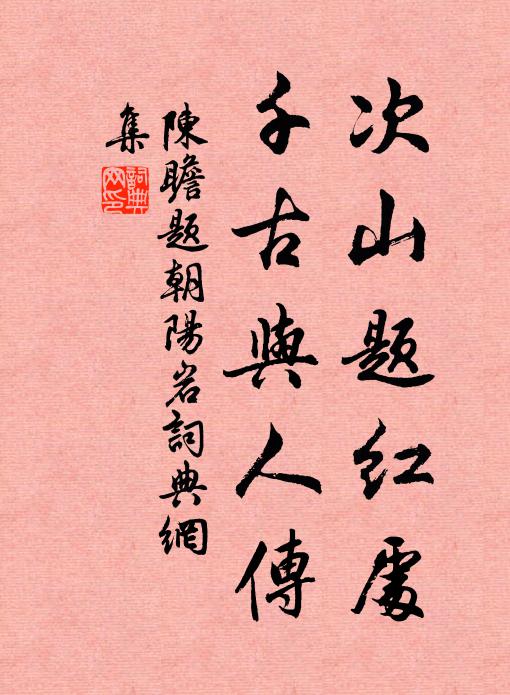 次山题红處
千古與人傳
陳瞻题朝陽岩詞典網
集
詞典网印